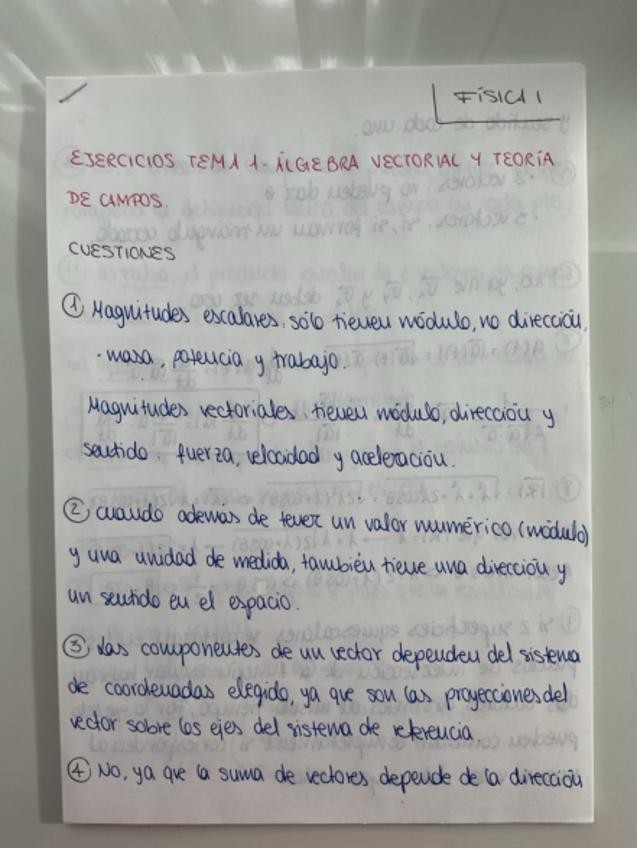 FÍSICA 1
EJERCICIOS TEMA 1 - ÁLGEBRA VECTORIAL Y TEORÍA
DE CAMPOS.
CUESTIONES
① Magnitudes escalares: sólo tienen módulo, no dirección.
· masa, potencia y trabajo.
Magnitudes vectoriales: tienen módulo, dirección y
sentido. fuerza, velocidad y aceleración.
② cuando ademas de tener un valor numérico (módulo)
y una unidad de medida, también tiene una dirección y
un sentido en el espacio.
③ Las componentes de un vector dependen del sistema
de coordenadas elegido, ya que son las proyecciones del
vector sobre los ejes del sistema de referencia.
④ No, ya que la suma de vectores depende de la dirección